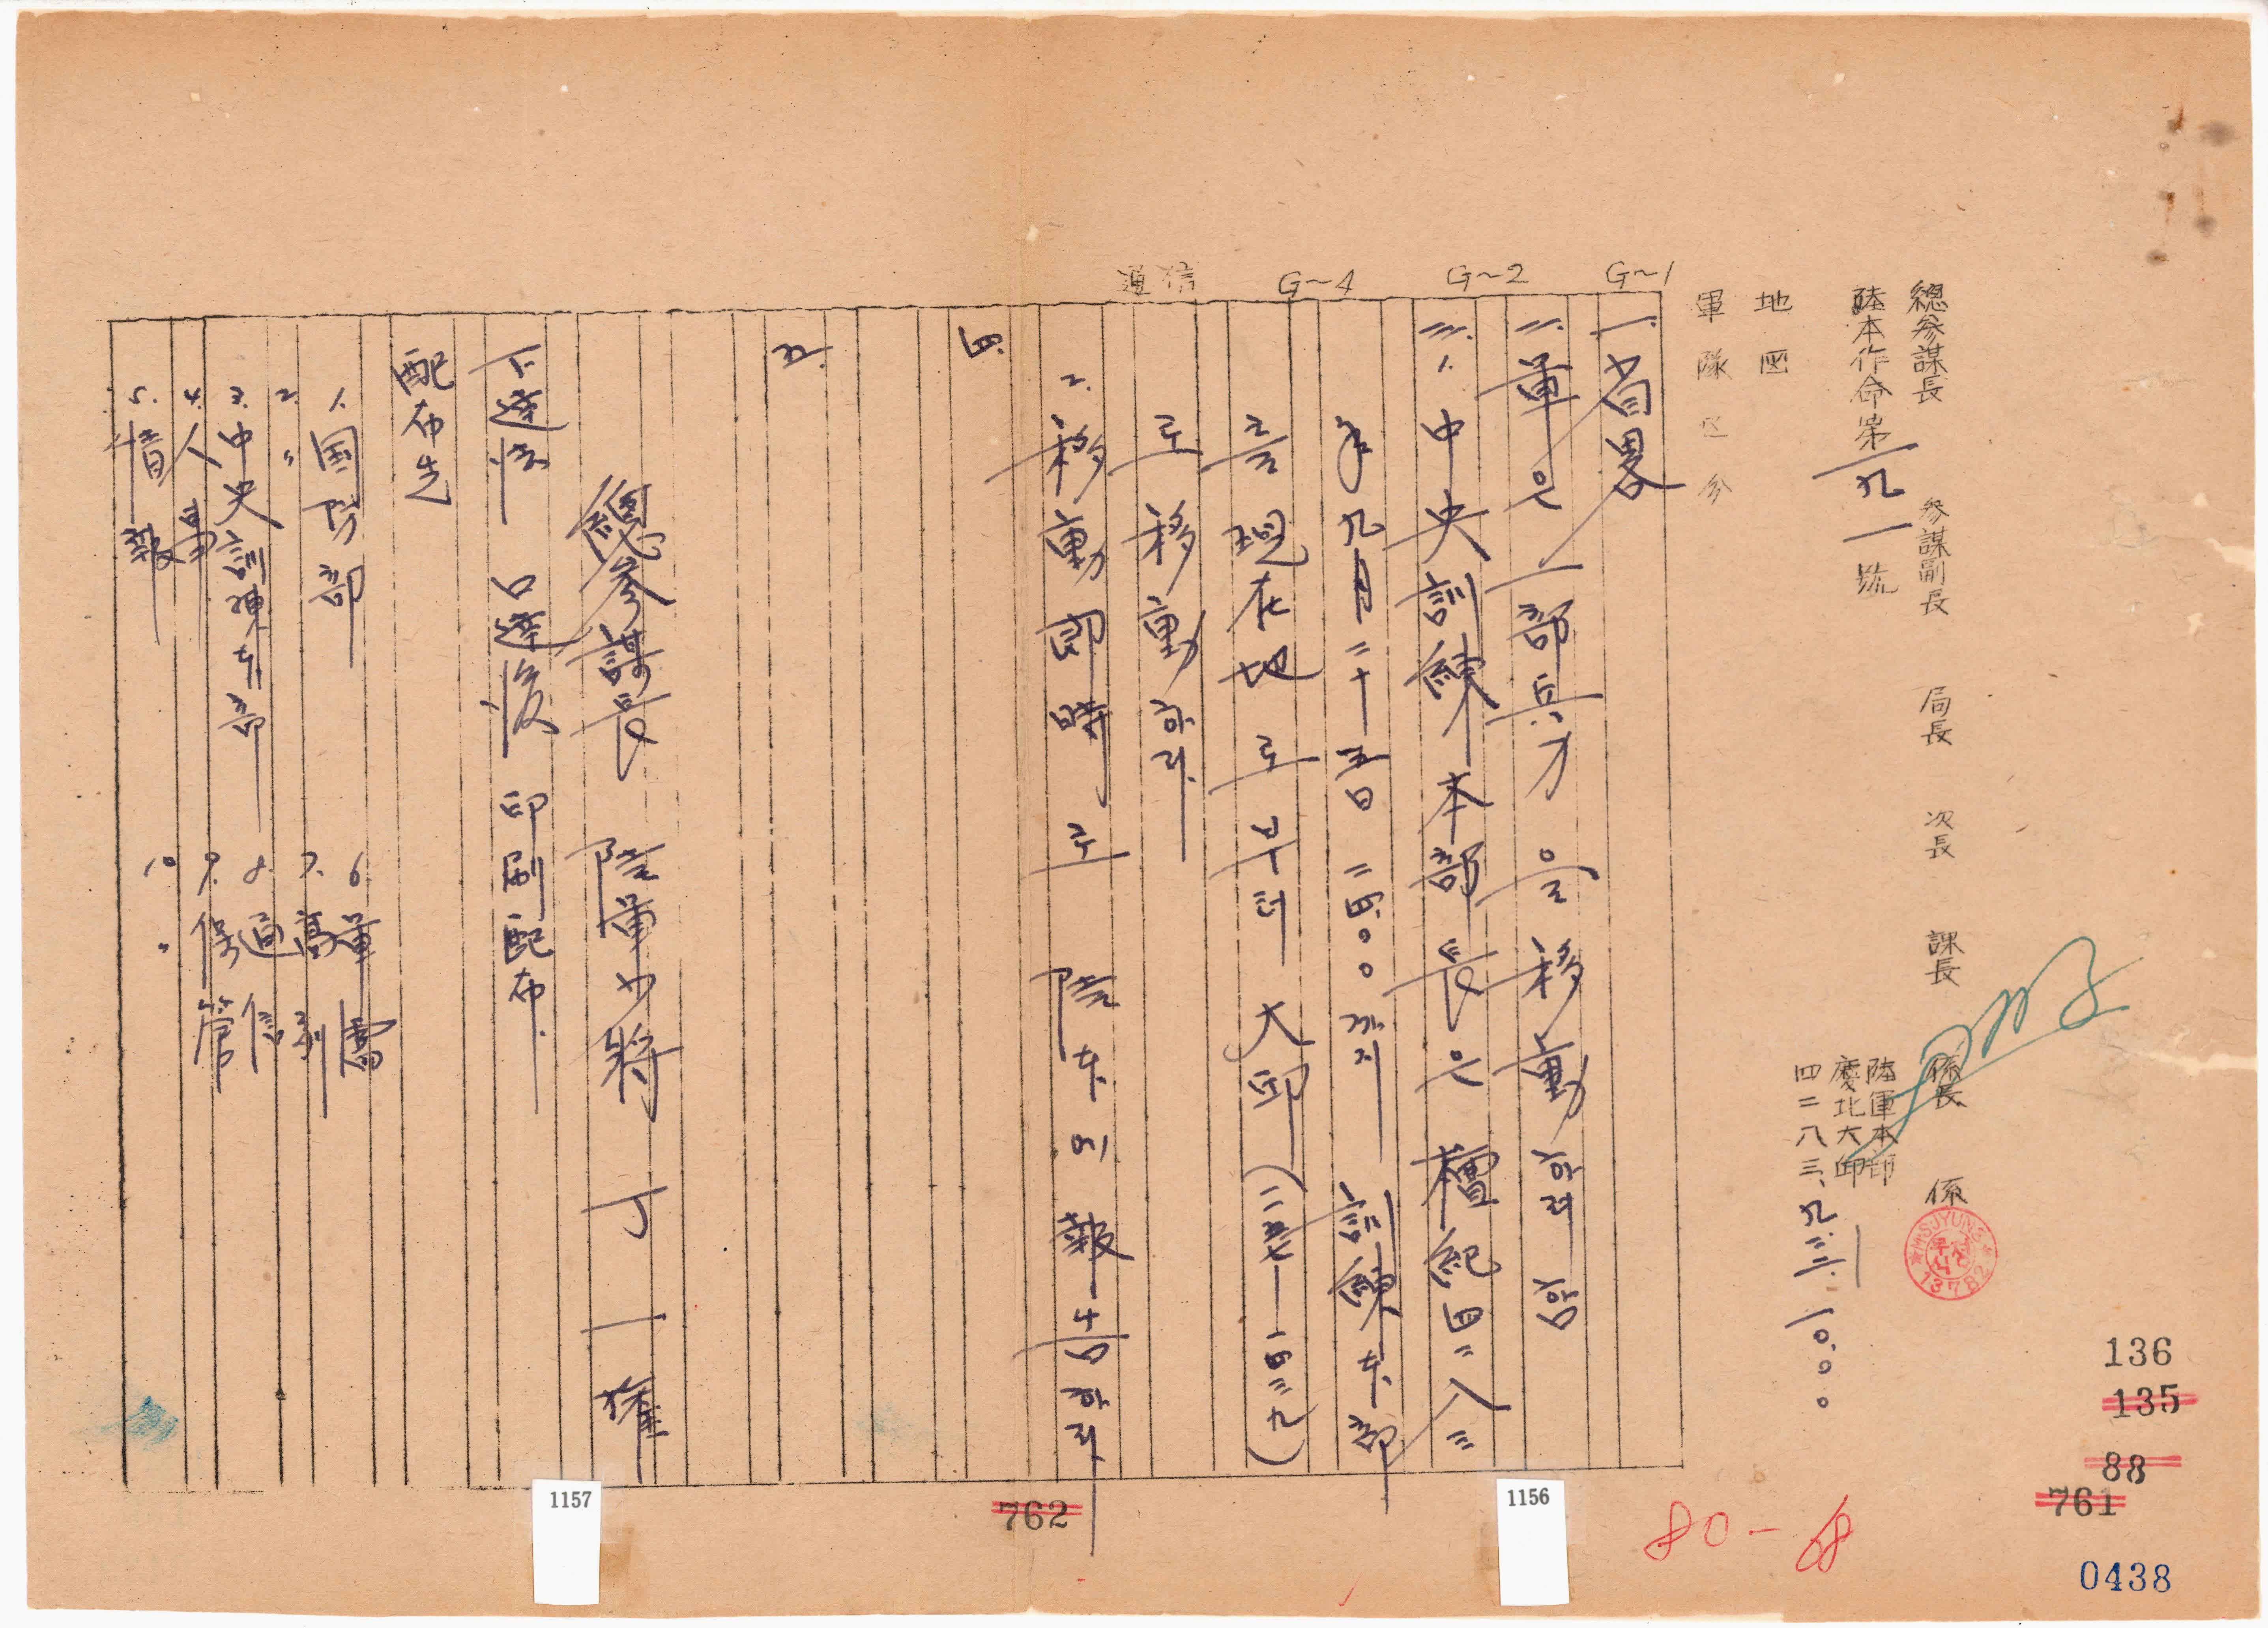 總參謀長 參謀副長 局長 次長 課長 係長 係
陸本作命第一九一號
陸軍本部
慶北大邱
四二八三、九、二三、一〇〇〇
地図
軍隊区分
G~1
G~2
G~4
通信
一. 省畧
二. 軍은 一部兵力을 移動하려 함
三. 1. 中央訓練本部長은 檀紀四二八三
年九月二十五日 二四.〇〇까지 訓練本部
를 現在地로부터 大邱
로 移動하라
2. 移動卽時로 陸本에 報告하라
四.
五.
總參謀長 陸軍少將 丁一權
下達法 口達後 印刷配布.
配布先
1. 国防部
2. 〃
3. 中央訓練本部
4. 人事
5. 情報
6. 軍需
7. 高副
8. 通信
9. 保管
10. 〃
SJYUNG
13782
136
135
88
761
762
0438
80-68
1156
1157